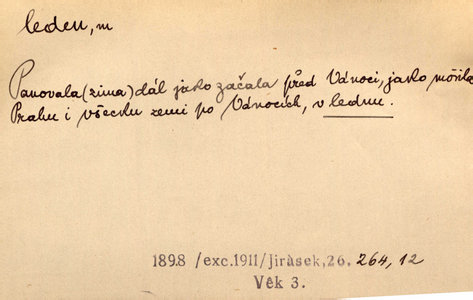 leden, m
Panovala (zima) dál jako začala před Vánoci, jako mořila
Prahu i všecku zemi po Vánocích, v lednu.
1898 /exc.1911/jirásek,26. 264,12
Věk 3.